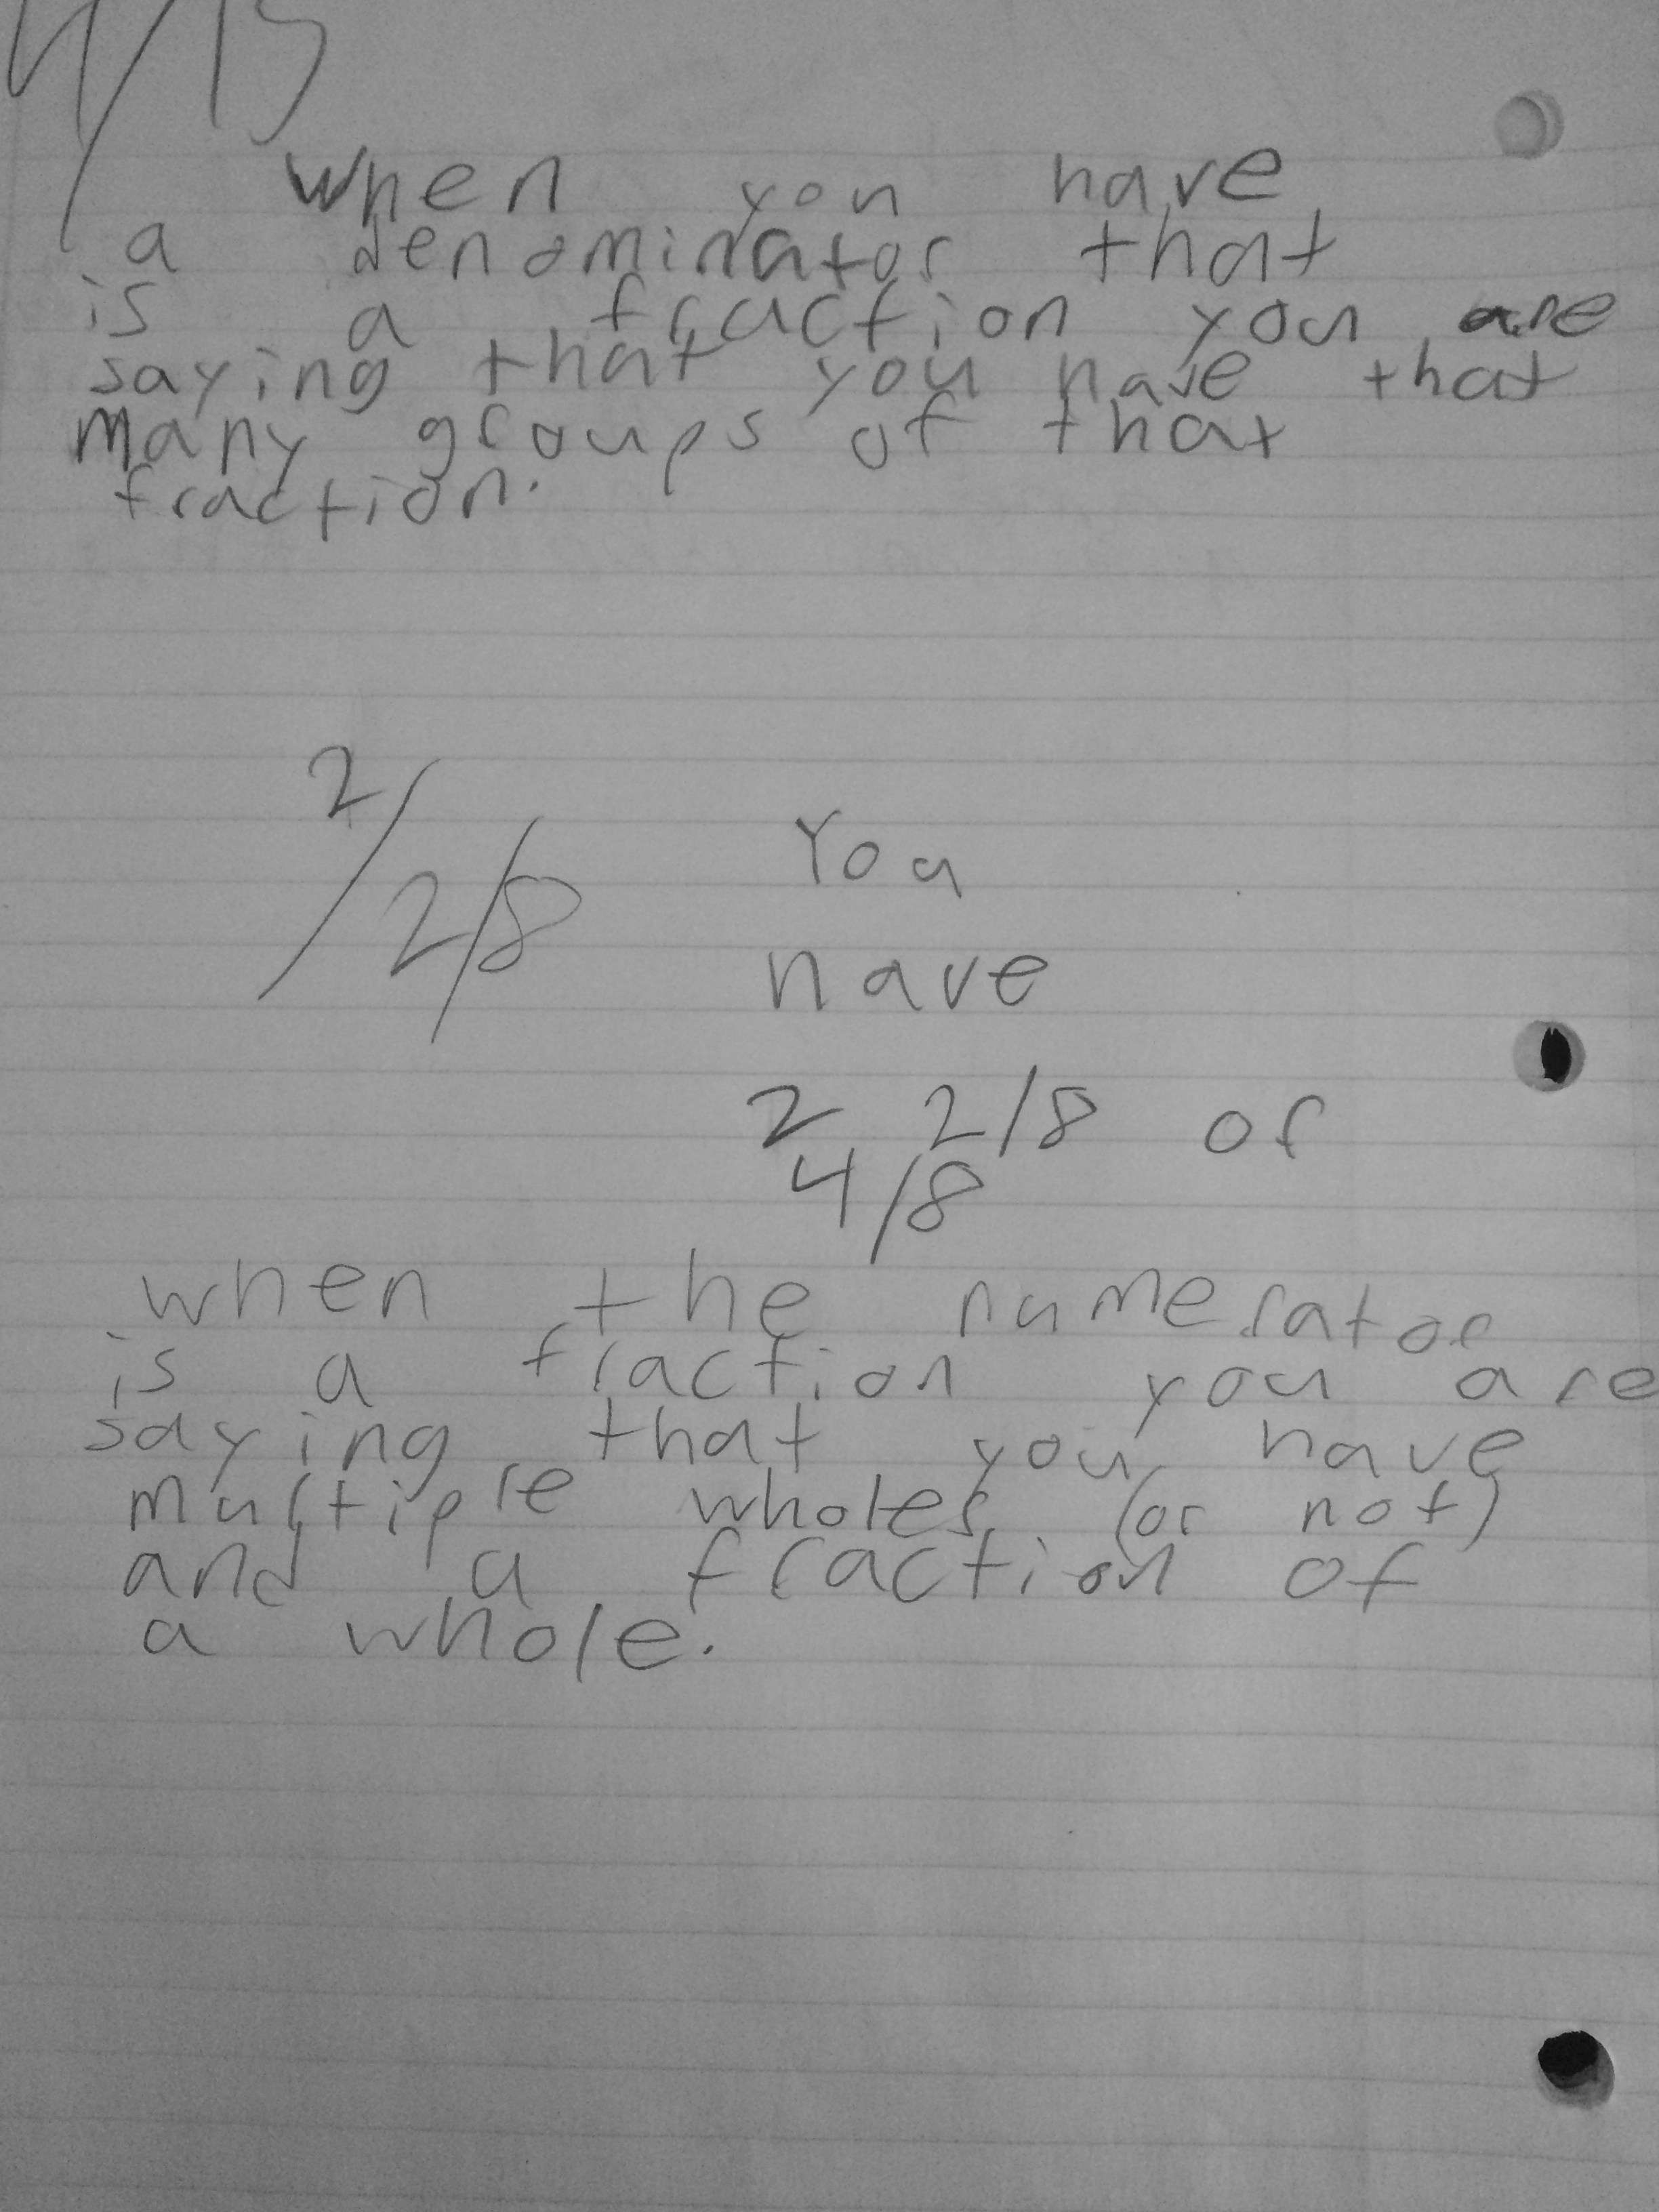 4/15
When you have
a denominator that
is a fraction you are
saying that you have that
many groups of that
fraction.
2/2/8
You
have
2 2/8 or
4/8
when the numerator
is a fraction you are
saying that you have
multiple wholes (or not)
and a fraction of
a whole.